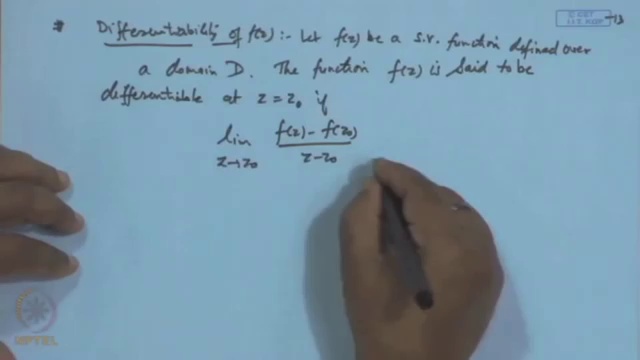 * Differentiability of f(z) :- Let f(z) be a s.v. function defined over
a domain D. The function f(z) is said to be
differentiable at z = z₀ if
lim z→z₀ f(z) - f(z₀) / z - z₀
© CET
I.I.T. KGP
-13
NPTEL